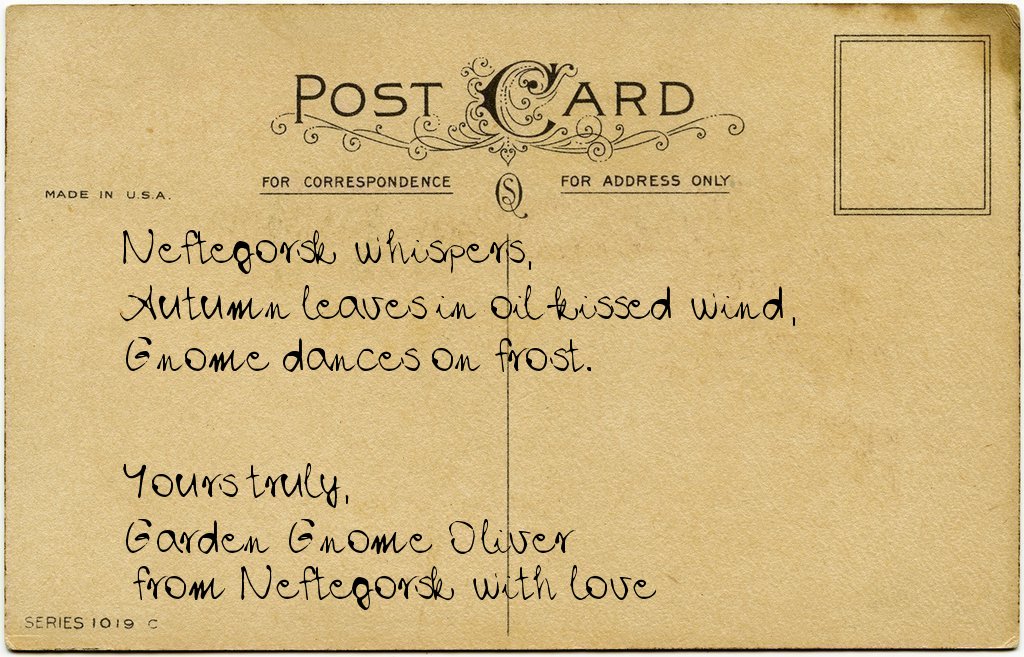 POST CARD
FOR CORRESPONDENCE
FOR ADDRESS ONLY
MADE IN U.S.A.
Neftegorsk whispers,
Autumn leaves in oil-kissed wind,
Gnome dances on frost.
Yours truly,
Garden Gnome Oliver
from Neftegorsk with love
SERIES 1019 C